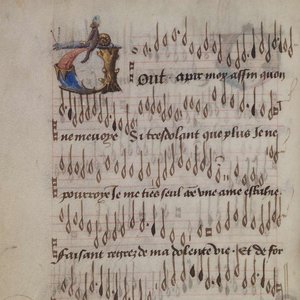 Tout a par moy affin quon
ne me voye Si tresdolant que plus Je ne
pourroye Je me tiens seul de une ame estable
Faisant regrez de ma dolente vie · Et de for